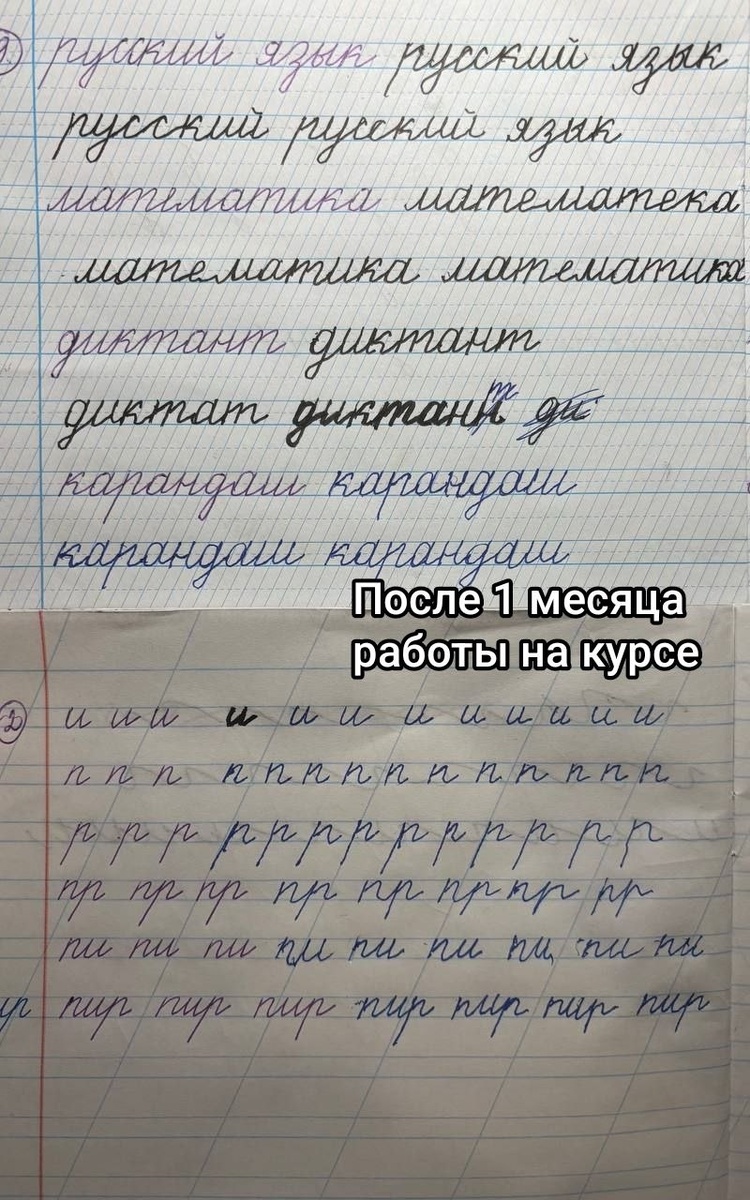 3. русский язык русский язык
русский русский язык
математика математека
математика математика
диктант диктант
диктат диктант ди
карандаш карандаш
карандаш карандаш
После 1 месяца
работы на курсе
2 и и и и и и и и и и и и
п п п п п п п п п п п п п
р р р р р р р р р р р р р
пр пр пр пр пр пр пр пр
пи пи пи пи пи пи пи пи пи
ир пир пир пир пир пир пир пир